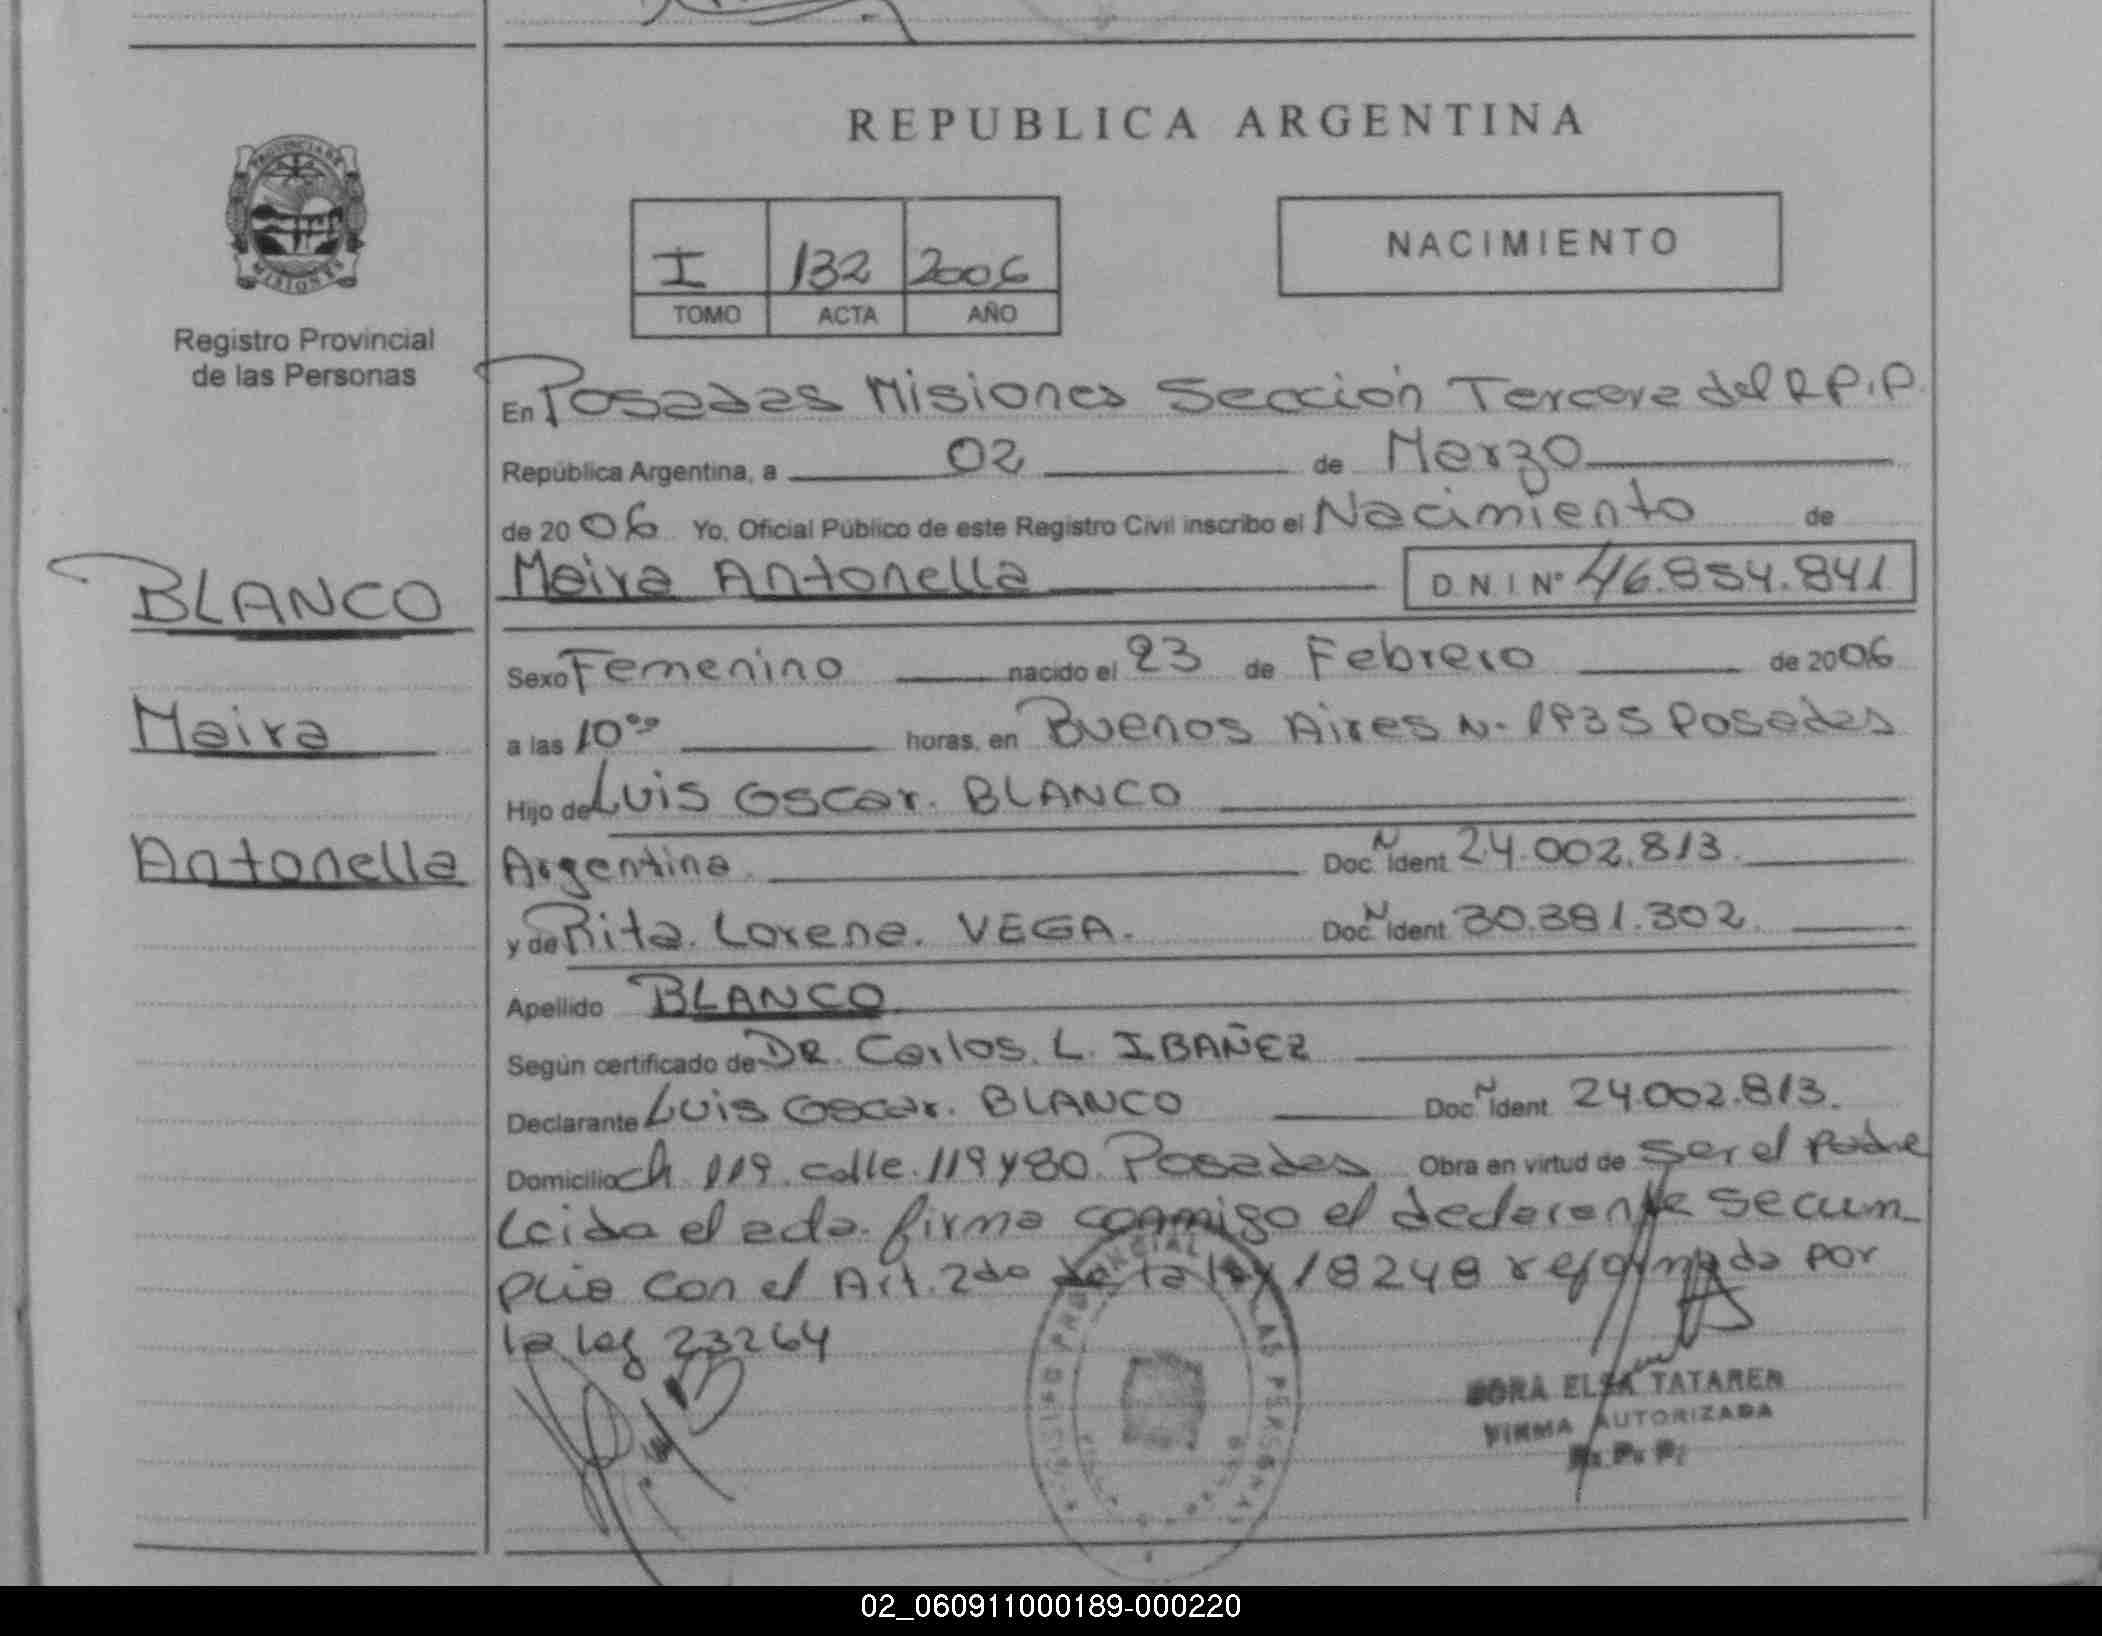 REPUBLICA ARGENTINA
PROVINCIA DE
MISIONES
Registro Provincial
de las Personas
I 132 2006
TOMO ACTA AÑO
NACIMIENTO
En Posadas Misiones Sección Tercera del R.P.P.
República Argentina, a 02 de Marzo
de 2006 Yo, Oficial Público de este Registro Civil inscribo el Nacimiento de
Maira Antonella D N I Nº 46.854.841
BLANCO
Maira
Antonella
Sexo Femenino nacido el 23 de Febrero de 2006
a las 10°° horas, en Buenos Aires N- 1935 Posadas
Hijo de Luis Oscar. BLANCO
Argentina Doc. N Ident 24.002.813.
y de Rita. Lorena. VEGA. Doc. N Ident 30.381.302.
Apellido BLANCO
Según certificado de DR. Carlos. L. IBAÑEZ
Declarante Luis Oscar. BLANCO Doc. N Ident 24.002.813.
Domicilio ch. 119. calle. 119 y 80. Posadas Obra en virtud de ser el padre
Leida el acta. firma conmigo el declarante se cum-
plio con el Art. 2do de la ley 18248 reformada por
la ley 23264
PROVINCIAL LAS PERSONAS
ELSA TATAREN
FIRMA AUTORIZADA
R. P. P.
02_060911000189-000220